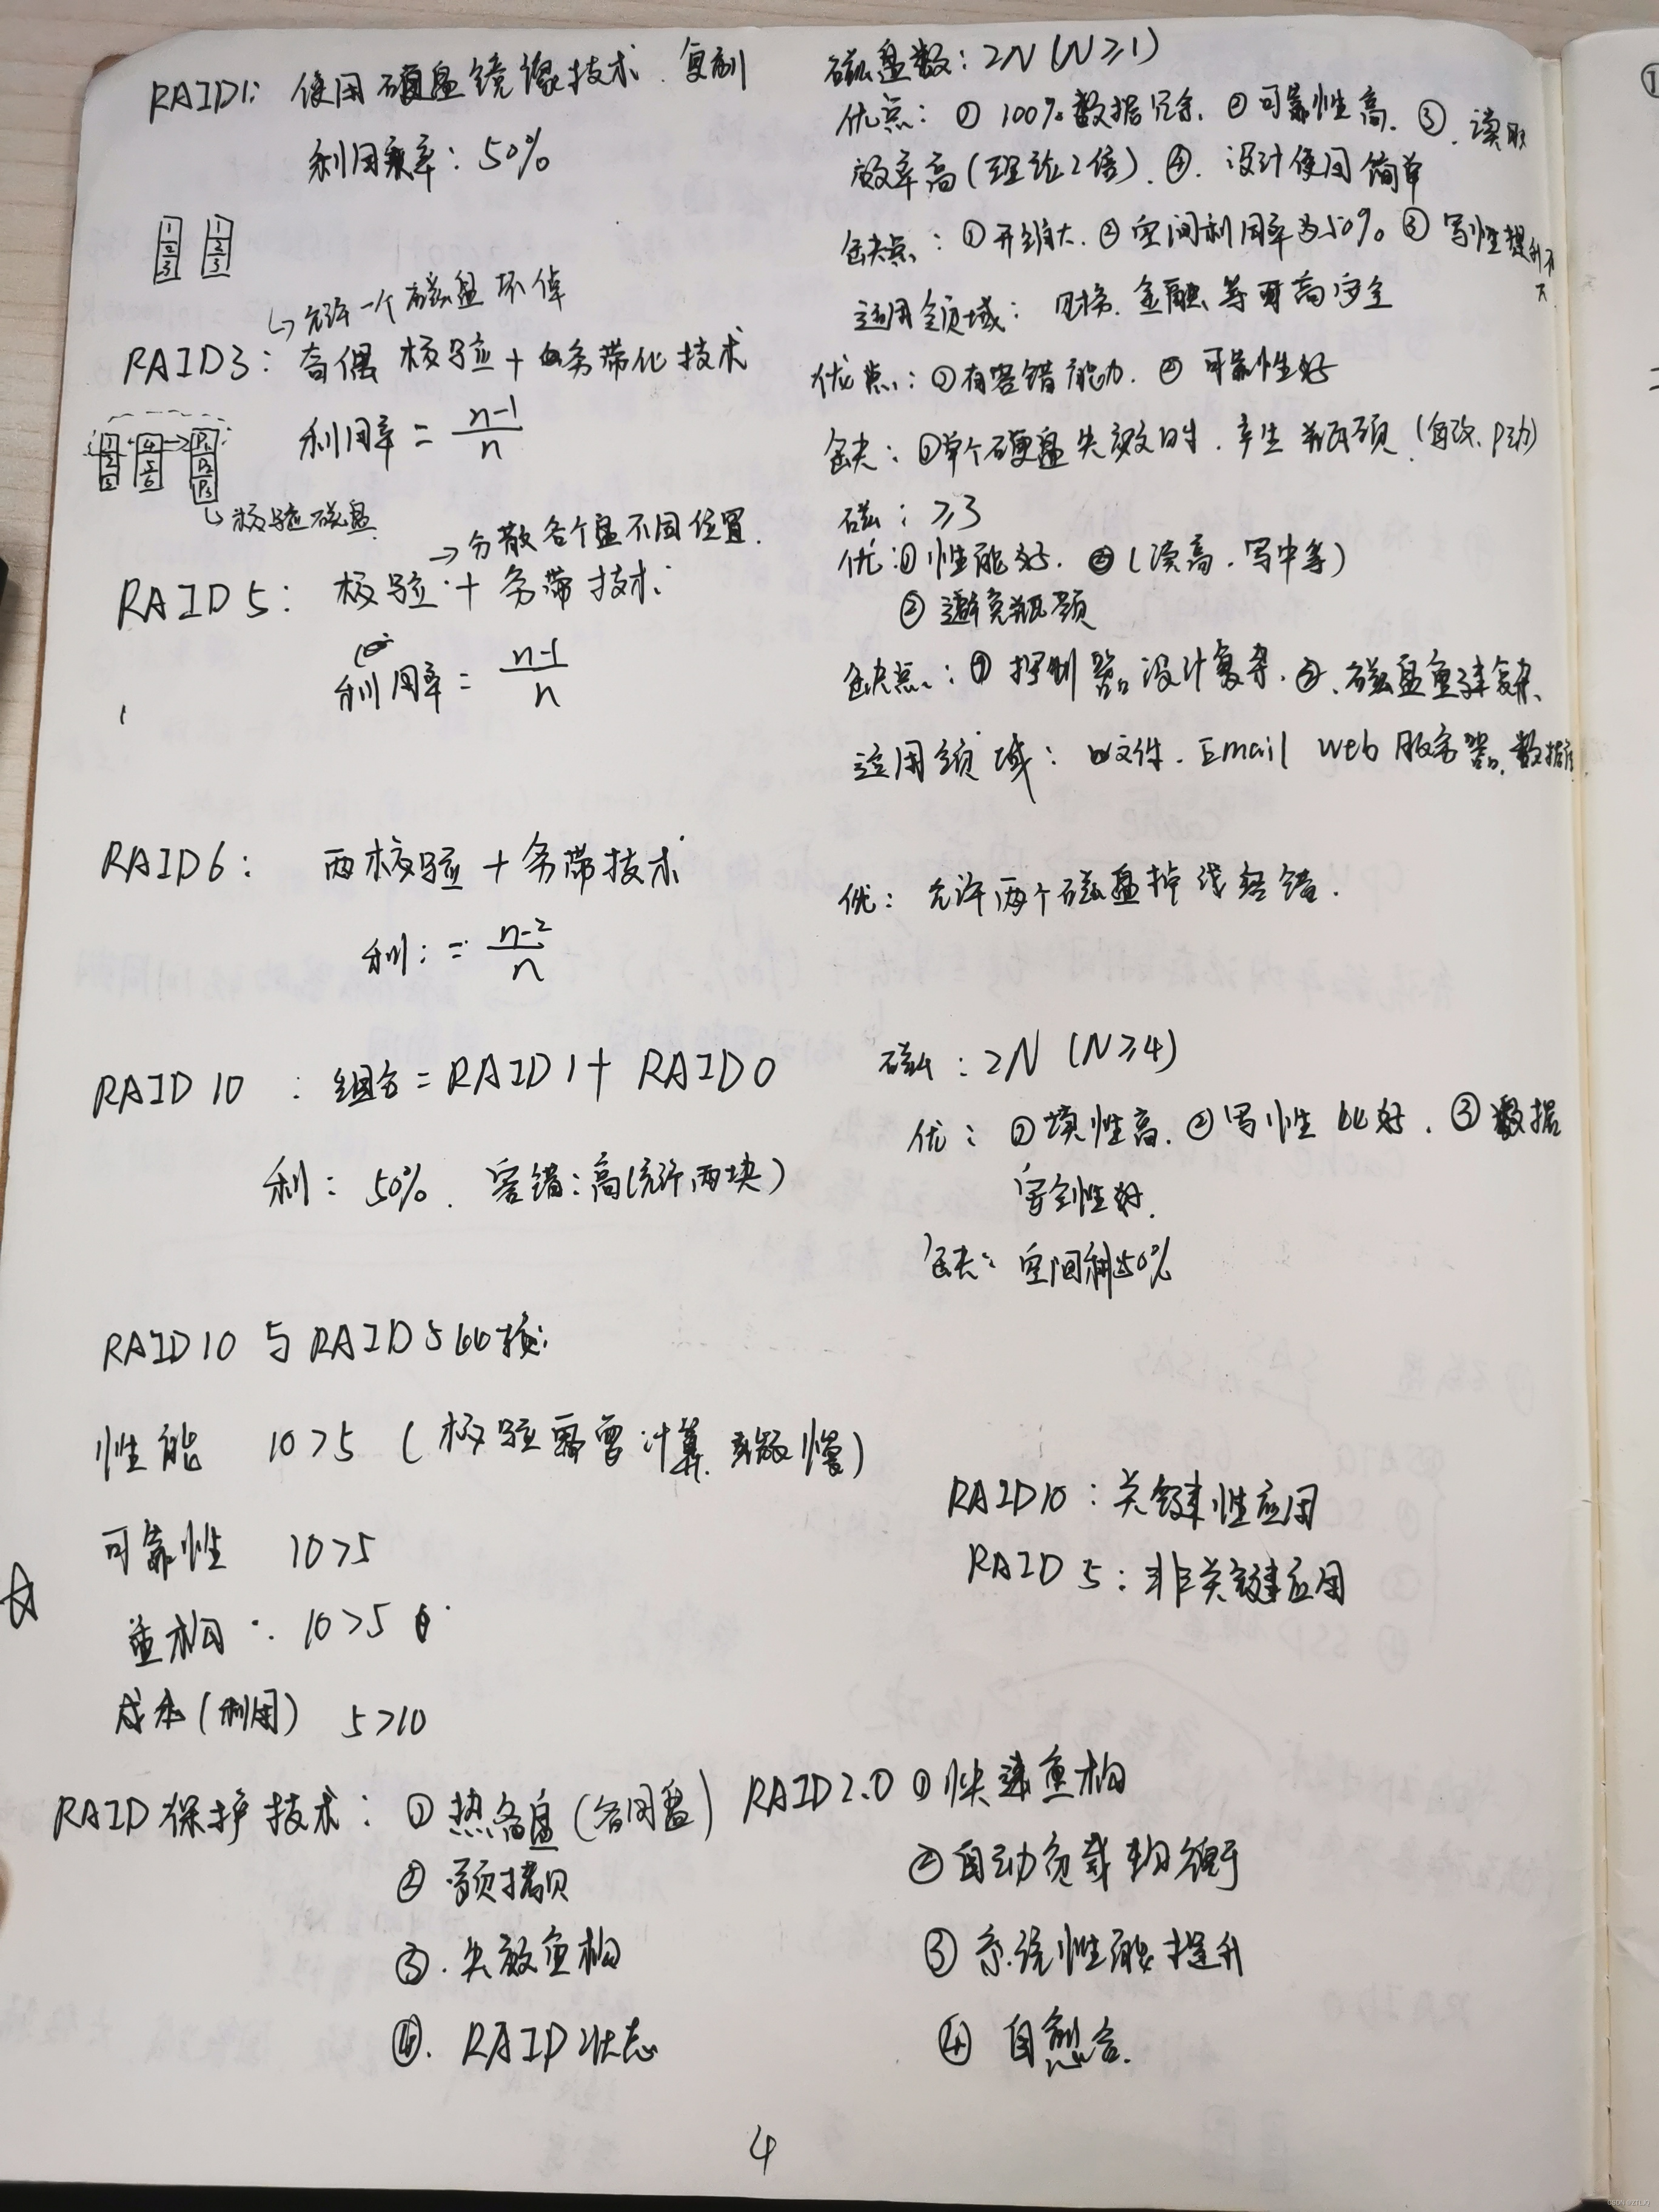 RAID1: 使用硬盘镜像技术. 复制
利用率: 50%
1 1
2 2
3 3
磁盘数: 2N (N≥1)
优点: ① 100%数据冗余. ② 可靠性高. ③. 读取
效率高(理论2倍). ④. 设计使用简单
缺点: ① 开销大. ② 空间利用率为50%. ③ 写性提升不
大
适用领域: 财务. 金融等 高安全
↳ 允许一个磁盘坏掉
RAID3: 奇偶校验 + 条带化技术
利用率 = n-1/n
1 4 P1
2 5 P2
3 6 P3
↳ 校验磁盘
优点: ① 有容错能力. ② 可靠性好
缺: ① 单个硬盘失效时. 产生瓶颈
→ 分散各个盘不同位置.
RAID 5: 校验 + 条带技术
利用率 = n-1/n
磁: ≥3
优: ① 性能好. (读高. 写中等)
② 避免瓶颈
缺点: ① 控制器设计复杂. ②. 磁盘重建复杂.
适用领域: 文件. Email web 服务器. 数据库
RAID6: 两校验 + 条带技术
利: = n-2/n
优: 允许两个磁盘掉线容错.
RAID 10 : 组合 = RAID 1 + RAID 0
利: 50%. 容错: 高(允许两块)
磁: 2N (N≥4)
优: ① 读性高. ② 写性比好. ③ 数据
安全性好.
缺: 空间利50%
RAID10 与 RAID5比较:
性能 10 > 5 ( 校验需要计算 慢)
可靠性 10 > 5
重构 : 10 > 5
成本(利用) 5 > 10
RAID10 : 关键性应用
RAID 5 : 非关键应用
RAID 保护技术: ① 热备盘(备用盘)
② 预拷贝
③. 失效重构
④. RAID状态
RAID2.0 ① 快速重构
② 自动负载均衡
③ 系统性能提升
④ 自愈合.
4